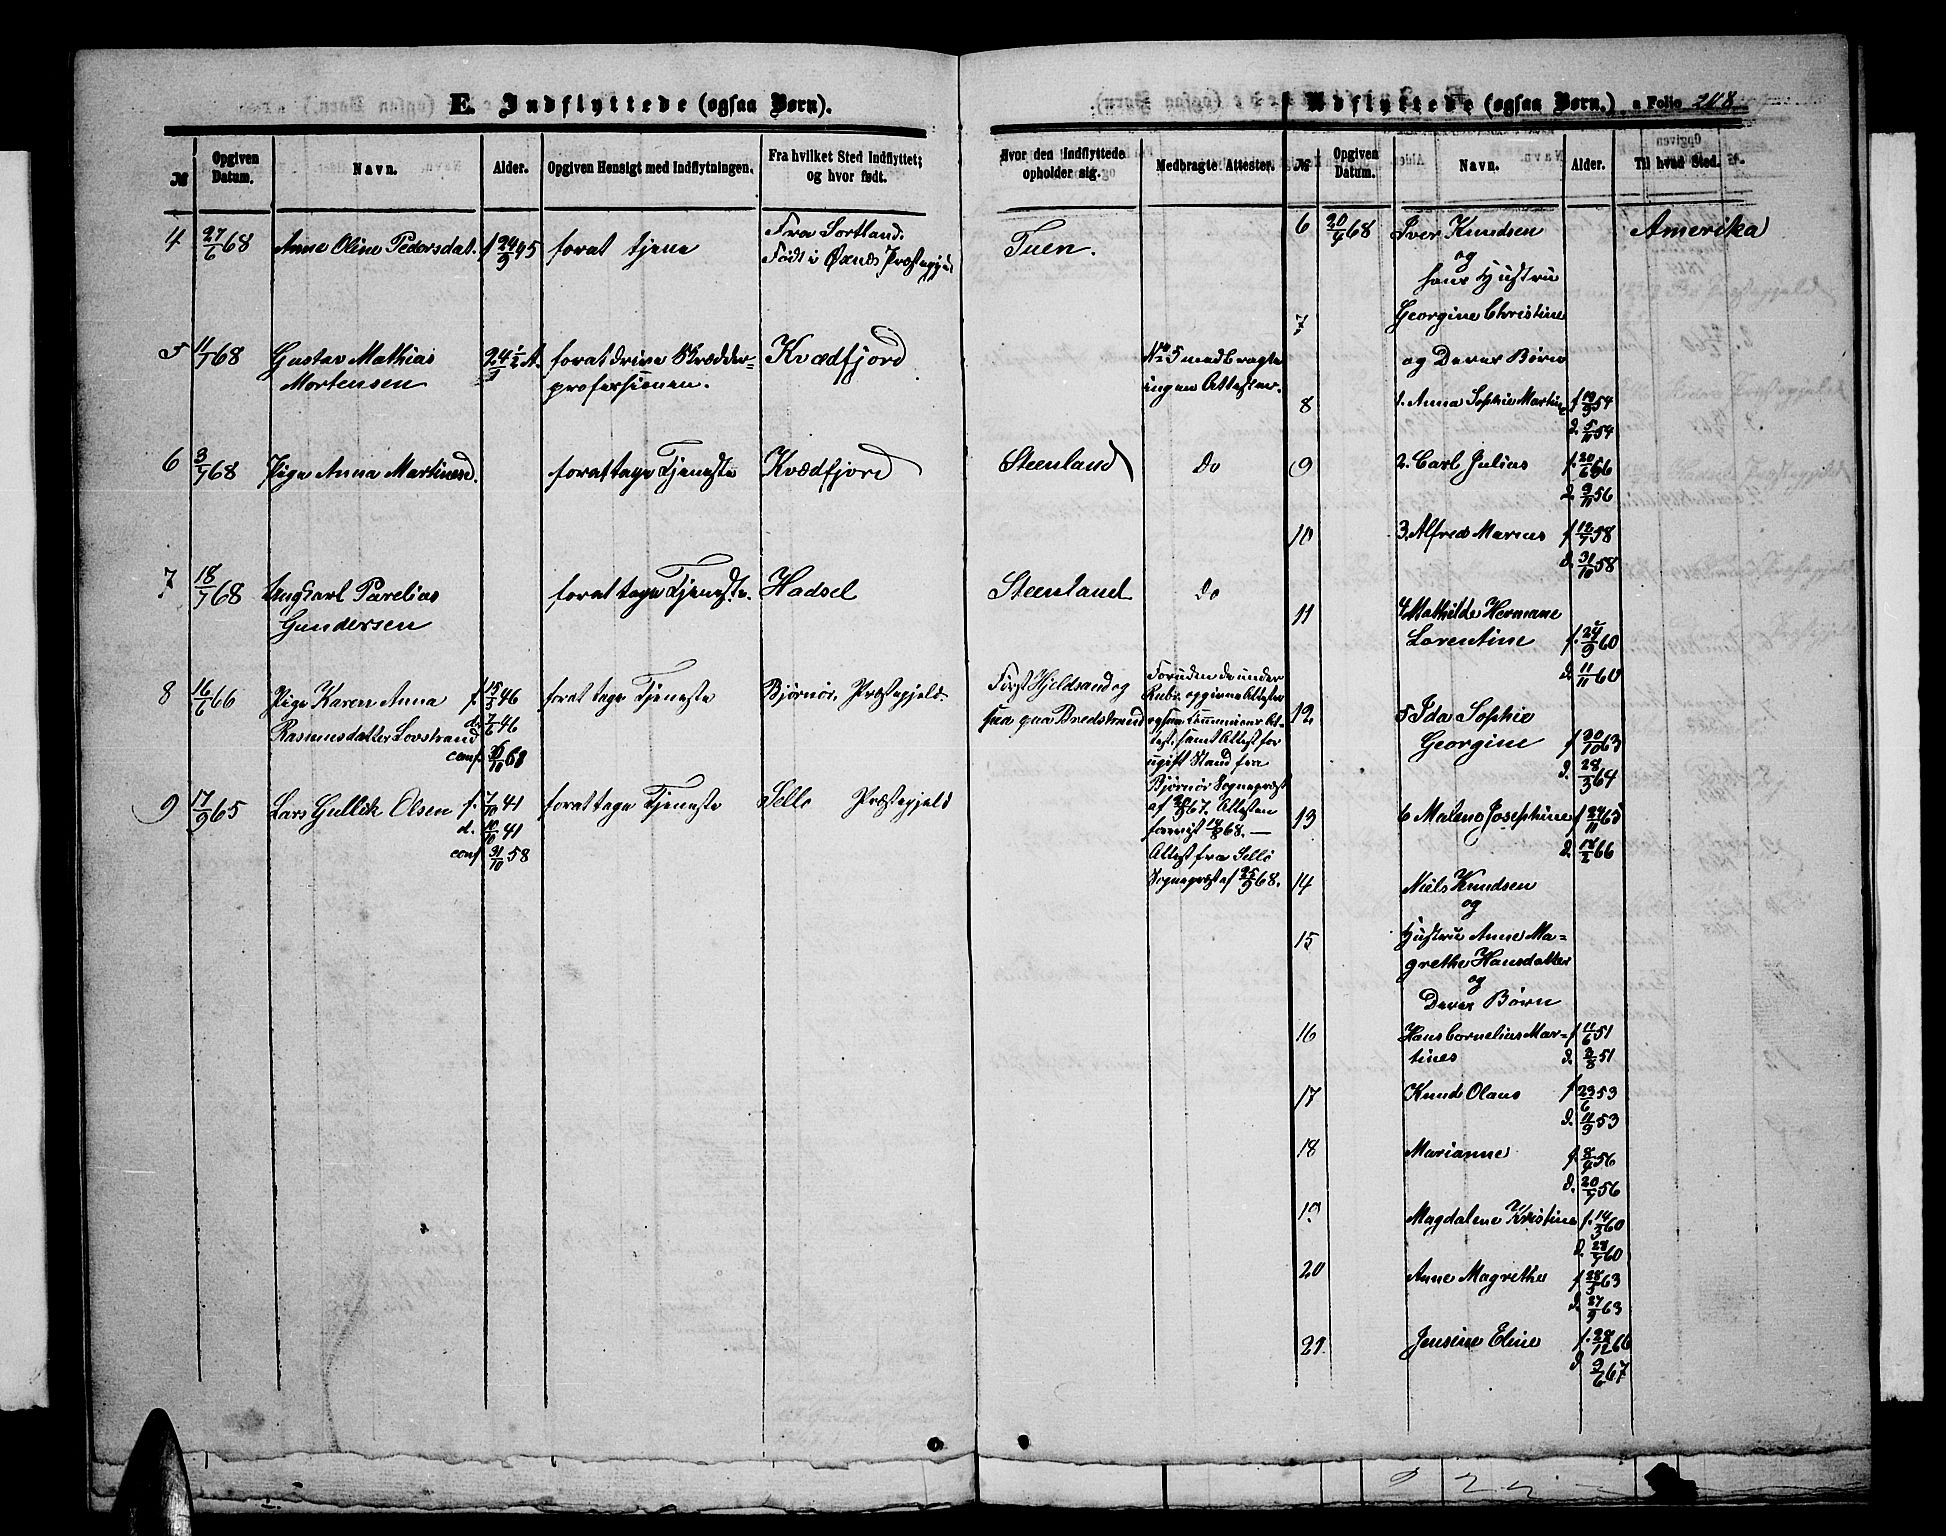 E. Indflyttede (ogsaa Børn).
№ Opgiven Datum. Navn. Alder. Opgiven Hensigt med Indflytningen. Fra hvilket Sted Indflyttet; og hvor født.
Hvor den Indflyttede opholder sig. Medbragte Attester.
4 27/6 68 Anne Oline Pedersdat. f 24/9 45 forat tjene Fra Sortland.
Født i Øxnes Præstegjeld
Tuen.
5 11/7 68 Gustav Mathias 24 1/2 A. forat drive Skrædder- Kvædfjord
Mortensen professionen.
No 5 medbragte
ingen Attester.
6 3/7 68 Pige Anna Martinesd. forat tage Tjeneste Kvædfjord Steenland Do
7 18/7 68 Ungkarl Parelias forat tage Tjeneste. Hadsel Steenland Do
Gundersen
8 16/6 66 Pige Karen Anna f. 15/3 46 forat tage Tjeneste Bjørnør Præstegjeld
Rasmusdatter Lovstrand d. 7/6 46
conf.
Først Hjeldsand og
saa paa Bredstrand
Foruden de under
Rubr. opgivne Attester
ogsaa
samt Attest for
ugift Stand fra
Bjørnør Sognepræst
Attesten
forevist 14/8 68. —
9 17/9 65 Lars Gullik Olsen f. 7/9 41 forat tage Tjeneste Sello Præstegjeld
d. 10/10 41
conf 31/10 58
Attest fra Sellø
Sognepræst af 25/9 68.
Udflyttede (ogsaa Børn.) a Folio 208
№ Opgiven Datum. Navn. Alder. Til hvad Sted.
6 20/4 68 Iver Knudsen Amerika
og
hans Hustru
7 Georgine Christine
og Deres Børn
8 1. Anna Sophie Martine f 19/9 54
d. 5/11 54
9 2. Carl Julias f. 20/6 56
d. 9/11 56
10 3. Alfred Marius f 12/7 58
d. 31/10 58
11 4 Mathilde Hermane
Lorentine f. 24/9 60
d. 11/11 60
12 5 Ida Sophie
Georgine f 20/10 63
d. 28/3 64
13 6 Maleno Josephine f 24/11 65
d. 18/2 66
14 Niels Knudsen
og
15 Hustru Anne Ma-
grethe Hansdatter
og
Deres Børn
16 Hans Cornelius Mar- f 11/6 51
tines d. 3/8 51
17 Knud Olaus f 29/6 53
d. 11/9 53
18 Marianne f. 8/4 56
d. 20/7 56
19 Magdalene Kristine f. 14/3 60
d. 28/5 60
20 Anne Magrethe f 28/5 63
d. 27/9 63
21 Jensine Eline f. 28/12 66
d 9/6 67